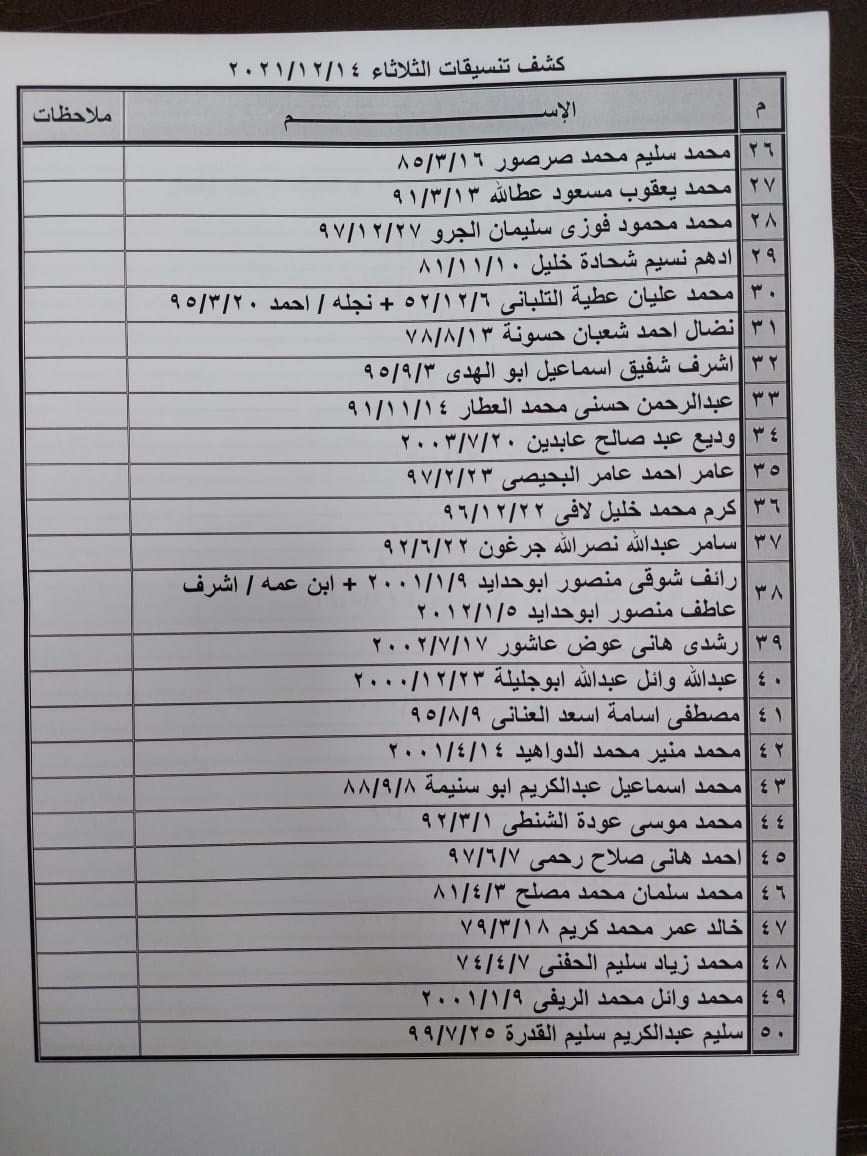 كشف تنسيقات الثلاثاء ٢٠٢١/١٢/١٤
م الإســـــــــم ملاحظات
٢٦ محمد سليم محمد صرصور ٨٥/٣/١٦
٢٧ محمد يعقوب مسعود عطالله ٩١/٣/١٣
٢٨ محمد محمود فوزى سليمان الجرو ٩٧/١٢/٢٧
٢٩ ادهم نسيم شحادة خليل ٨١/١١/١٠
٣٠ محمد عليان عطية التلبانى ٥٢/١٢/٦ + نجله / احمد ٩٥/٣/٢٠
٣١ نضال احمد شعبان حسونة ٧٨/٨/١٣
٣٢ اشرف شفيق اسماعيل ابو الهدى ٩٥/٩/٣
٣٣ عبدالرحمن حسنى محمد العطار ٩١/١١/١٤
٣٤ وديع عبد صالح عابدين ٢٠٠٣/٧/٢٠
٣٥ عامر احمد عامر البحيصى ٩٧/٢/٢٣
٣٦ كرم محمد خليل لافى ٩٦/١٢/٢٢
٣٧ سامر عبدالله نصرالله جرغون ٩٢/٦/٢٢
٣٨ رائف شوقى منصور ابوحدايد ٢٠٠١/١/٩ + ابن عمه / اشرف
عاطف منصور ابوحدايد ٢٠١٢/١/٥
٣٩ رشدى هانى عوض عاشور ٢٠٠٢/٧/١٧
٤٠ عبدالله وائل عبدالله ابوجليلة ٢٠٠٠/١٢/٢٣
٤١ مصطفى اسامة اسعد العنانى ٩٥/٨/٩
٤٢ محمد منير محمد الدواهيد ٢٠٠١/٤/١٤
٤٣ محمد اسماعيل عبدالكريم ابو سنيمة ٨٨/٩/٨
٤٤ محمد موسى عودة الشنطى ٩٢/٣/١
٤٥ احمد هانى صلاح رحمى ٩٧/٦/٧
٤٦ محمد سلمان محمد مصلح ٨١/٤/٣
٤٧ خالد عمر محمد كريم ٧٩/٣/١٨
٤٨ محمد زياد سليم الحفنى ٧٤/٤/٧
٤٩ محمد وائل محمد الريفى ٢٠٠١/١/٩
٥٠ سليم عبدالكريم سليم القدرة ٩٩/٧/٢٥